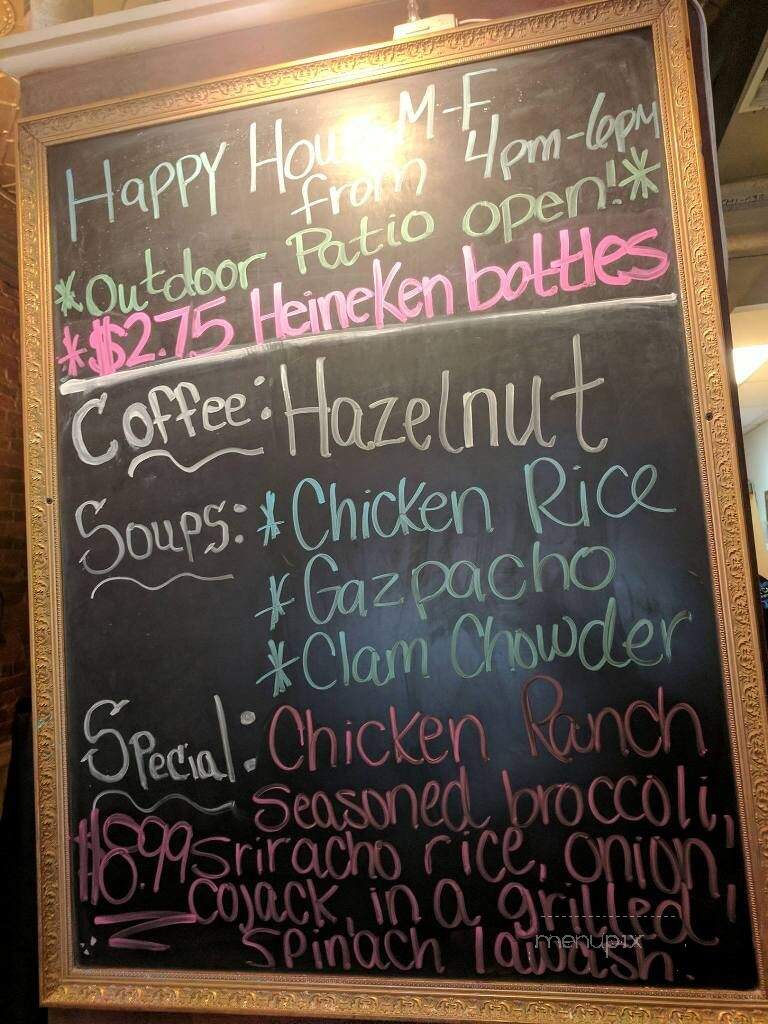 Happy Hour M-F
from 4pm-6pm
*Outdoor Patio open!*
*$2.75 Heineken bottles
Coffee: Hazelnut
Soups: *Chicken Rice
*Gazpacho
*Clam Chowder
Special: Chicken Ranch
Seasoned broccoli,
$8.99 Sriracho rice, onion,
cojack, in a grilled
Spinach lawash.
menupix